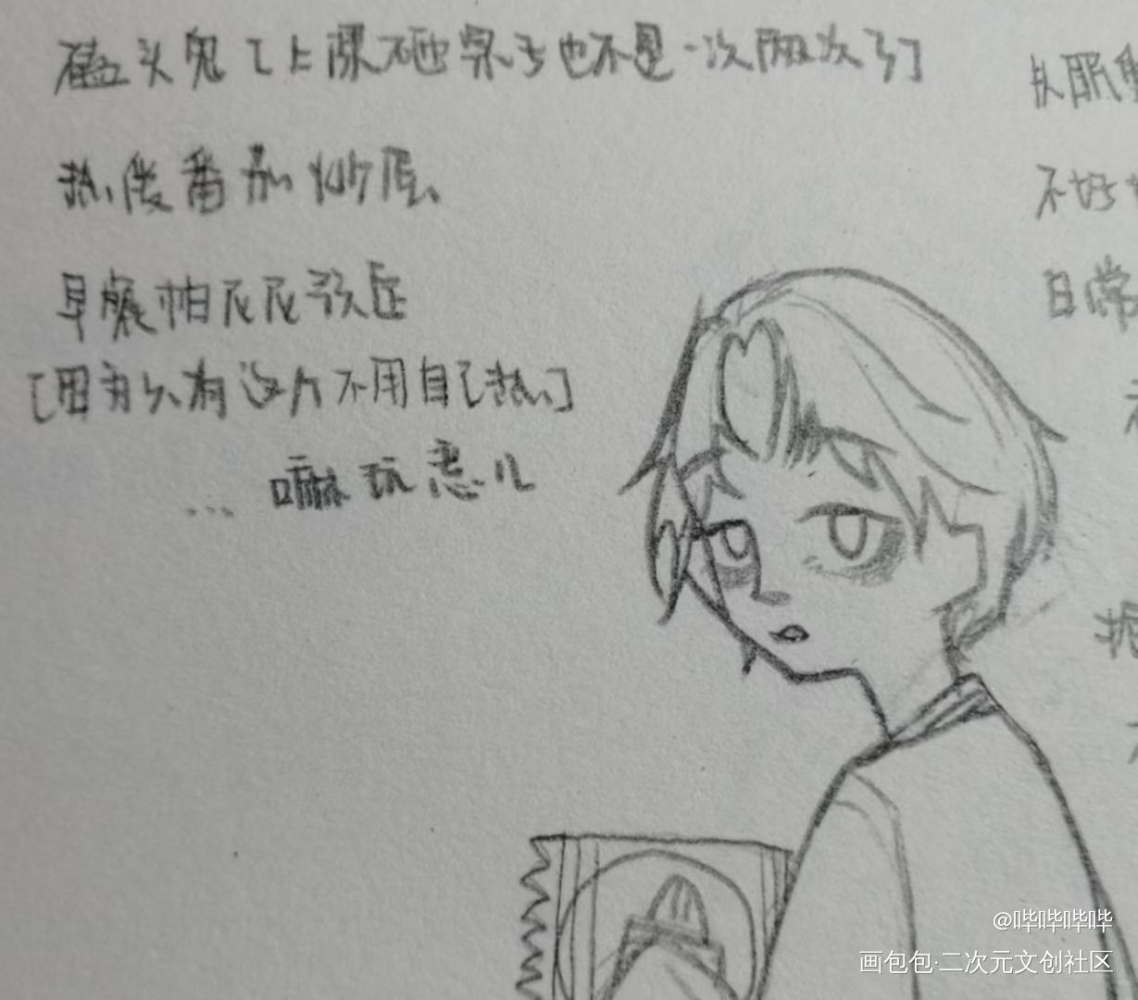 磕头鬼[上课不砸桌子也不是一次两次了]
热爱番茄炒蛋
早餐帕尼尼预定
[因为只有这个不用自己热]
... 嘛玩意儿
从眼
不好
日常
@哔哔哔哔
画包包·二次元文创社区